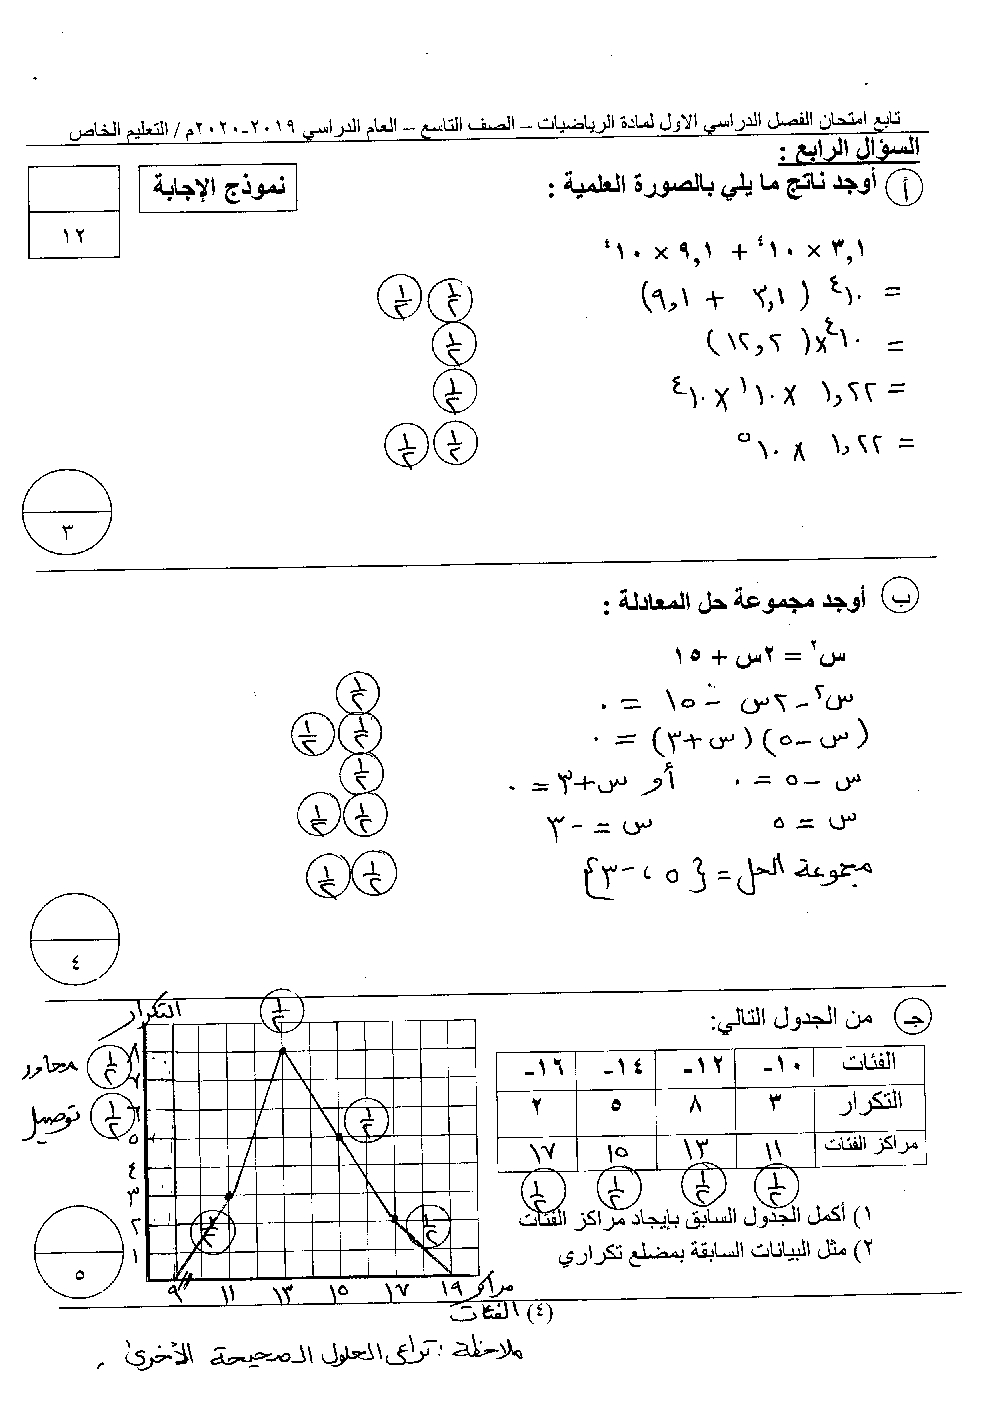 تابع امتحان الفصل الدراسي الاول لمادة الرياضيات – الصف التاسع – العام الدراسي ٢٠١٩-٢٠٢٠م / التعليم الخاص
السؤال الرابع :
أ أوجد ناتج ما يلي بالصورة العلمية :
نموذج الإجابة
١٢
٣,١ × ١٠^٤ + ٩,١ × ١٠^٤
= ١٠^٤ ( ٣,١ + ٩,١ ) ½ ½
= ١٠^٤ × ( ١٢,٢ ) ½
= ١,٢٢ × ١٠^١ × ١٠^٤ ½
= ١,٢٢ × ١٠^٥ ½ ½
٣
ب أوجد مجموعة حل المعادلة :
س^٢ = ٢س + ١٥
س^٢ – ٢س – ١٥ = ٠ ½
(س – ٥) (س + ٣) = ٠ ½ ½
س – ٥ = ٠ أو س + ٣ = ٠ ½
س = ٥ س = -٣ ½ ½
مجموعة الحل = {٥ ، -٣} ½ ½
٤
جـ من الجدول التالي:
الفئات ١٠- ١٢- ١٤- ١٦-
التكرار ٣ ٨ ٥ ٢
مراكز الفئات ١١ ١٣ ١٥ ١٧
½ ½ ½ ½
١) أكمل الجدول السابق بإيجاد مراكز الفئات
٢) مثل البيانات السابقة بمضلع تكراري
التكرار
½ محاور
½ توصيل
٨
٧
٦
٥
٤
٣
٢
١
½ ½ ½ ½
٩ ١١ ١٣ ١٥ ١٧ ١٩ مراكز
الفئات
٥
(٤)
ملاحظة : تراعى الحلول الصحيحة الأخرى .